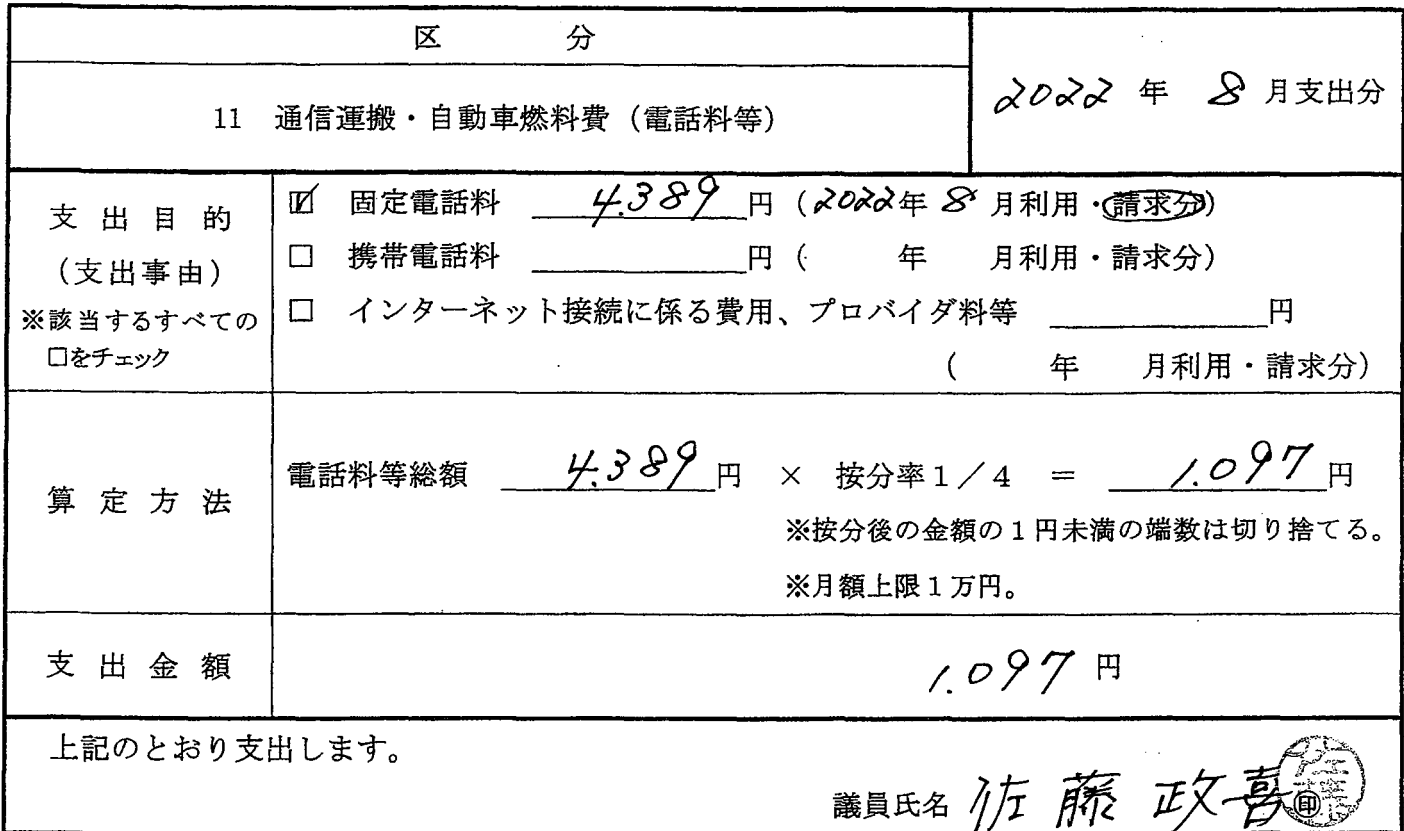 区 分
11 通信運搬・自動車燃料費（電話料等）
2022 年 8 月支出分
支出目的
（支出事由）
※該当するすべての
□をチェック
☑ 固定電話料 4.389 円（2022年 8 月利用・請求分）
□ 携帯電話料 円（ 年 月利用・請求分）
□ インターネット接続に係る費用、プロバイダ料等 円
（ 年 月利用・請求分）
算定方法
電話料等総額 4.389 円 × 按分率1／4 ＝ 1.097 円
※按分後の金額の1円未満の端数は切り捨てる。
※月額上限1万円。
支出金額
1.097 円
上記のとおり支出します。
議員氏名 佐藤 政喜 ㊞
佐藤